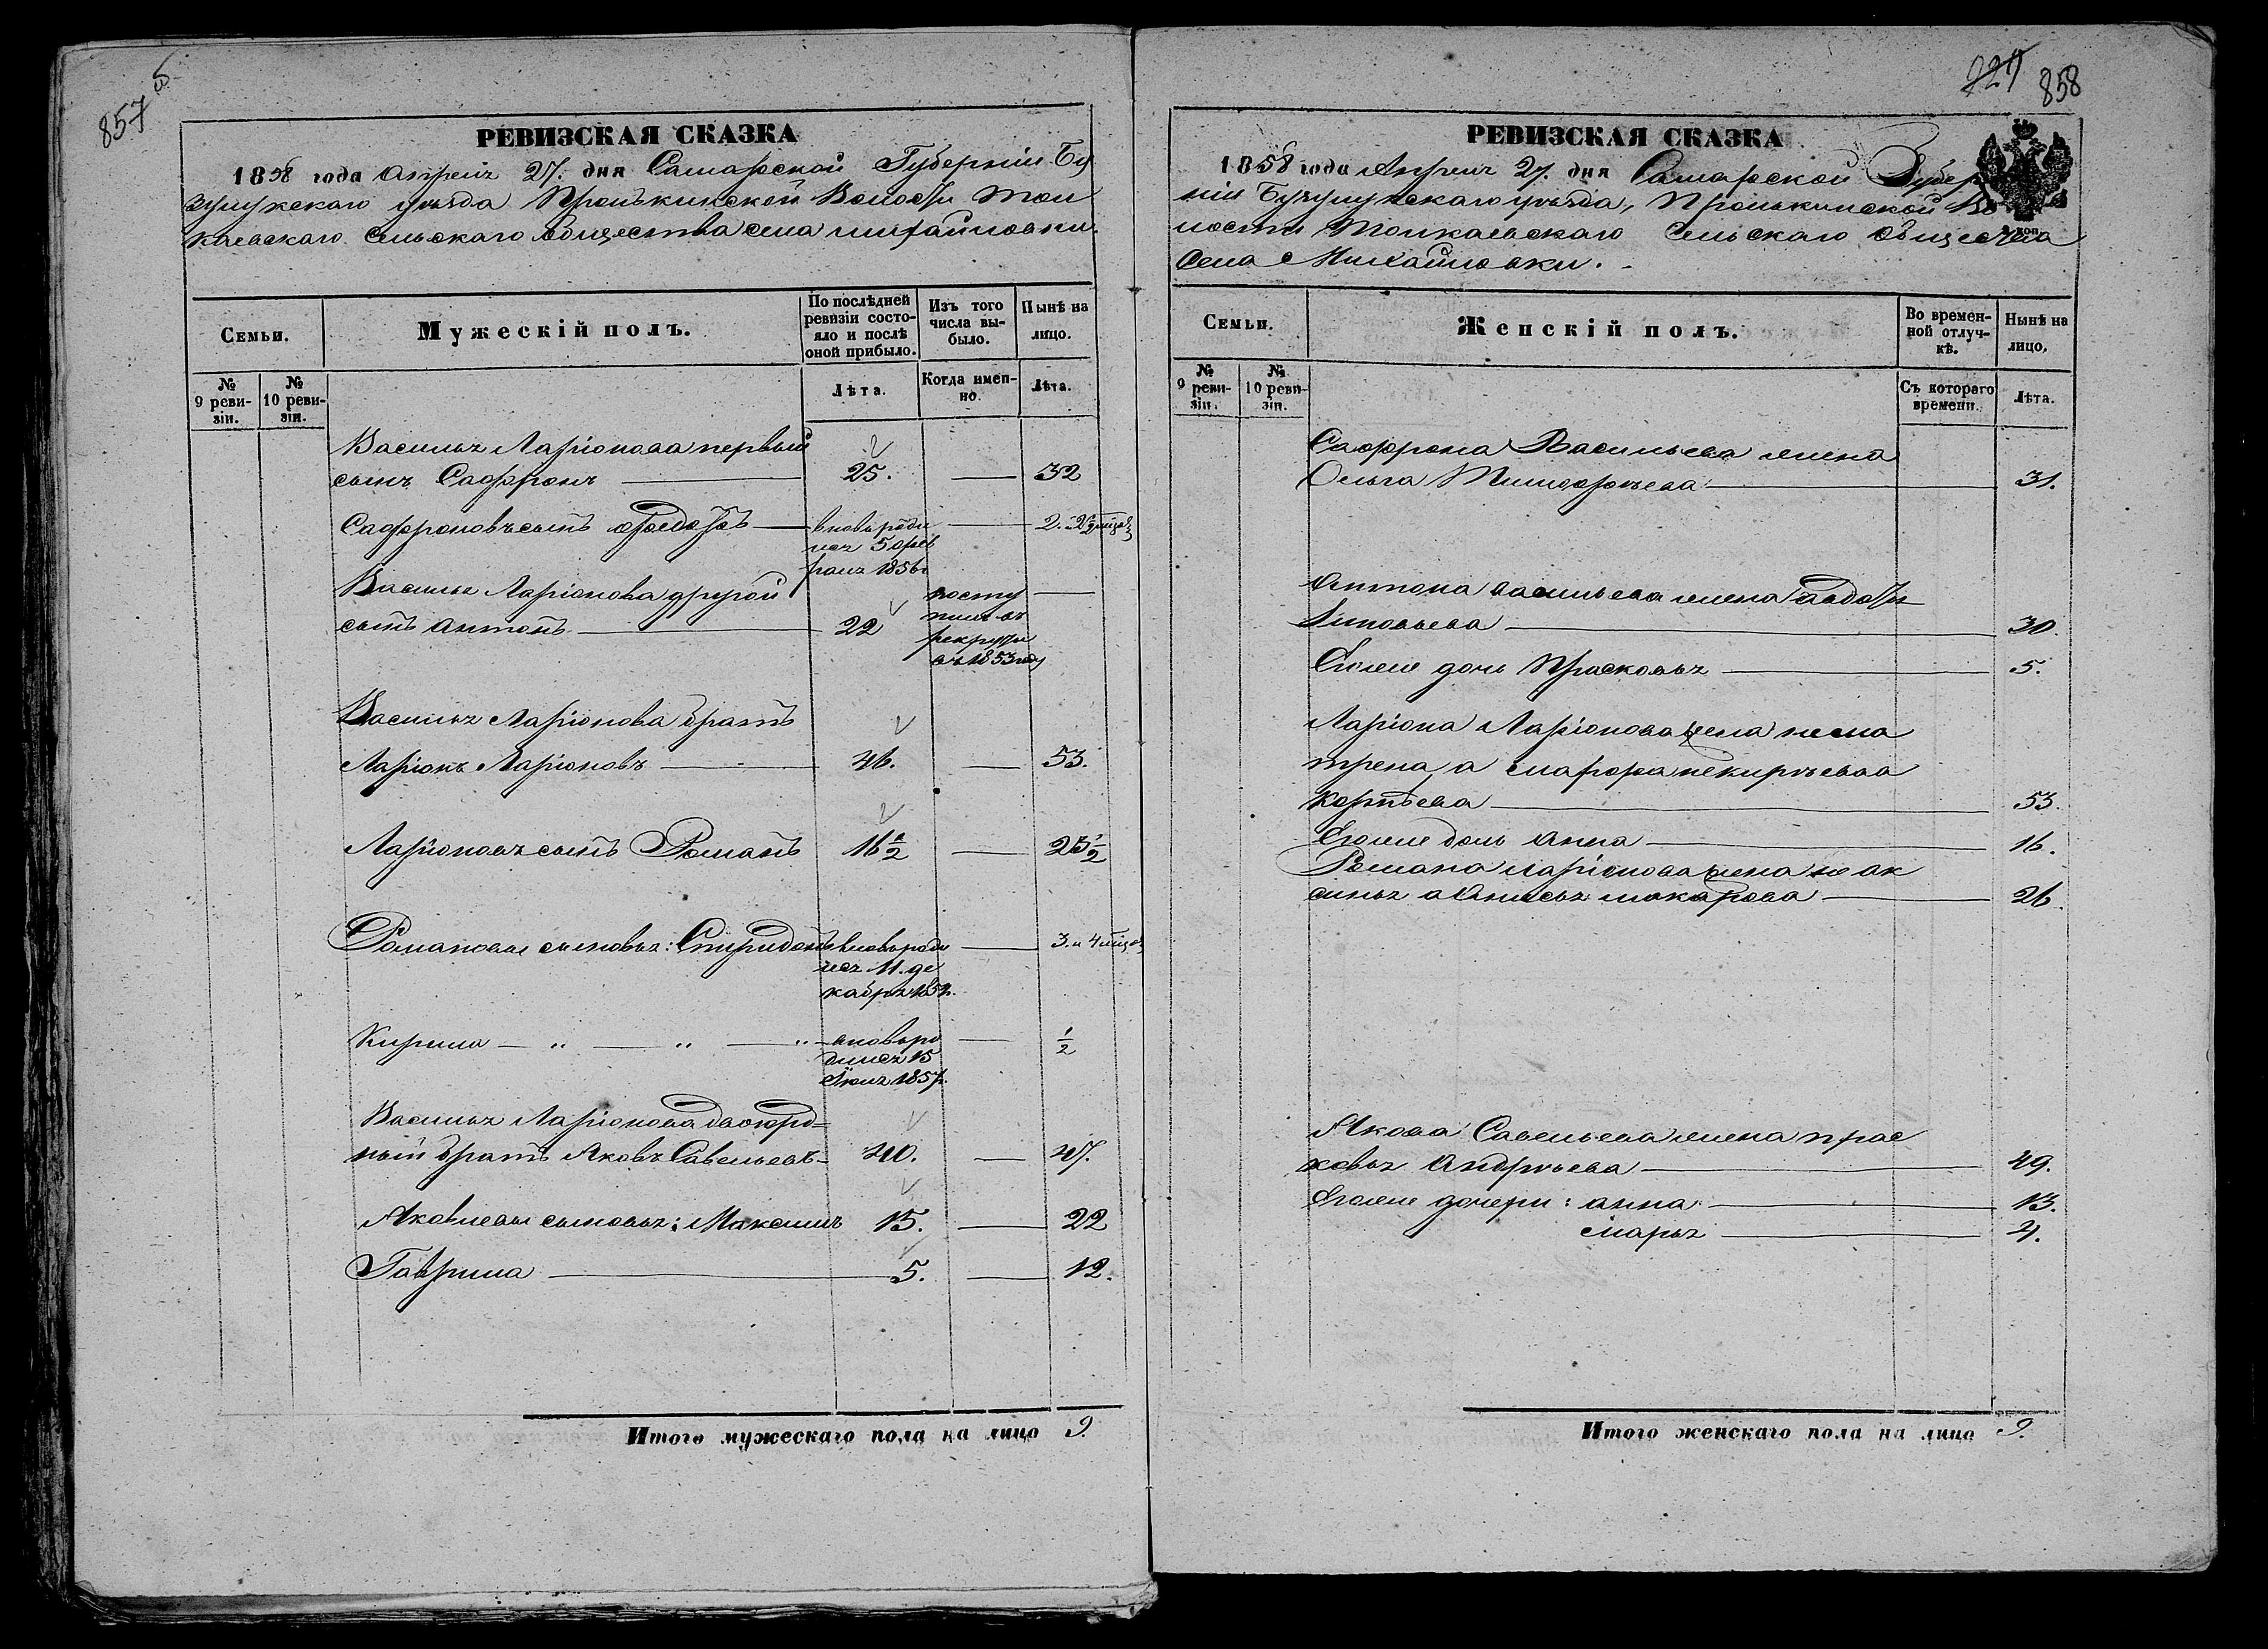 857 об
РЕВИЗСКАЯ СКАЗКА
1858 года Апреля 27. дня Самарской Губерніи Бу
зулукскаго уѣзда Пронькинской Волости Тол
каевскаго Сельскаго Общества села Михайловки.
Семьи.
Мужескій полъ.
По послѣдней ревизіи состояло и послѣ оной прибыло.
Изъ того числа выбыло.
Нынѣ на лицо.
№ 9 ревизіи.
№ 10 ревизіи.
Лѣта.
Когда именно.
Лѣта.
Василья Ларіонова первый
сынъ Сафронъ 25. 32
Сафроновъ сынъ Федотъ вновь роди
лся 5 фев
раля 1856г
2. 2½ мѣсяц
Василья Ларіонова другой
сынъ Антонъ 22
посту
пилъ въ
рекруты
въ 1853 году
Василья Ларіонова братъ
Ларіонъ Ларіоновъ 46. 53.
Ларіоновъ сынъ Романъ 16½ 23½
Романовы сыновья: Спиридонъ вновь роди
лся 11. де
кабря 185
3. и 4 мѣсяц
Кирила „ „ „ вновь ро
дился 15
Июля 1857г.
½
Василья Ларіонова двоюрод=
ный братъ Яковъ Савельевъ 40. 47.
Яковлевы сыновья: Максимъ 15. 22
Гаврила 5. 12.
Итого мужескаго пола на лицо 9.
229 858
РЕВИЗСКАЯ СКАЗКА
1858 года Апреля 27. дня Самарской Губер
ніи Бузулукскаго уѣзда, Пронькинской Во
лости Толкаевскаго Сельскаго Общества
Села Михайловки.
Семьи.
Женскій полъ.
Во временной отлучкѣ.
Нынѣ на лицо.
№ 9 ревизіи.
№ 10 ревизіи.
Съ котораго времени.
Лѣта.
Сафрона Васильева жена
Ольга Тимофѣева 31.
Антона Васильева жена Авдотья
Зиновьева 30.
Егоже дочь Прасковья 5.
Ларіона Ларіонова жена не ма
трена, а Марфа не кирѣева а
Корнѣева 53.
Егоже дочь Анна 16.
Романа Ларіонова жена не ак
синья а Анисья Макарова 26.
Якова Савельева жена прас
ковья Андрѣева 49.
Егоже дочери: Анна 13.
Марья 4.
Итого женскаго пола на лицо 9.